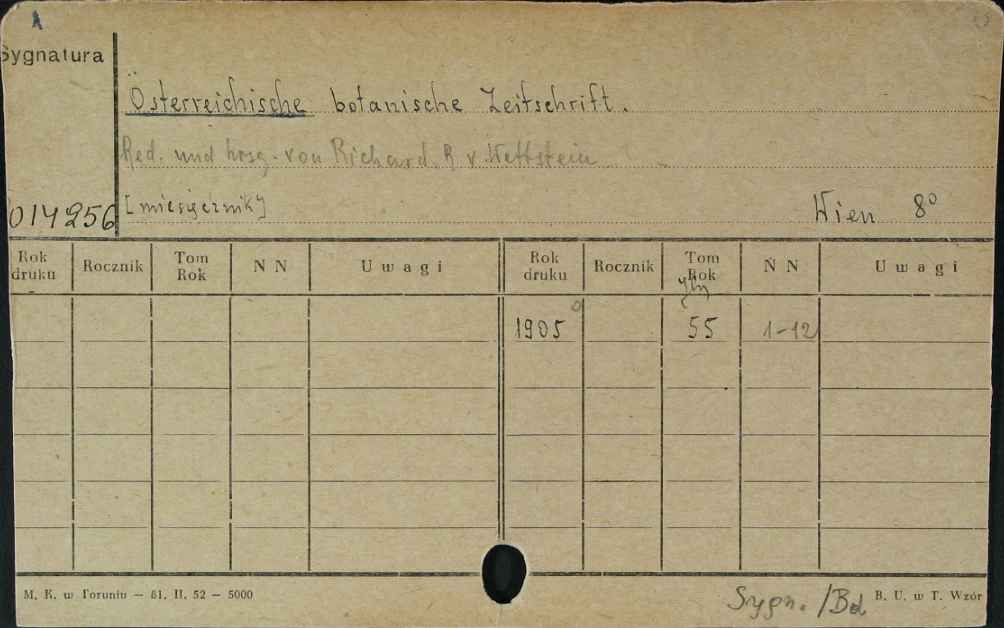 A
Sygnatura
Österreichische botanische Zeitschrift.
Red. und hrsg. von Richard R v. Wettstein
014256 [miesięcznik] Wien 8°
Rok druku Rocznik Tom Rok N N Uwagi Rok druku Rocznik Tom Rok N N Uwagi
1905 55 1-12
M. K. w Toruniu — 61. II. 52 — 5000
Sygn. /Bd B. U. w T. Wzór